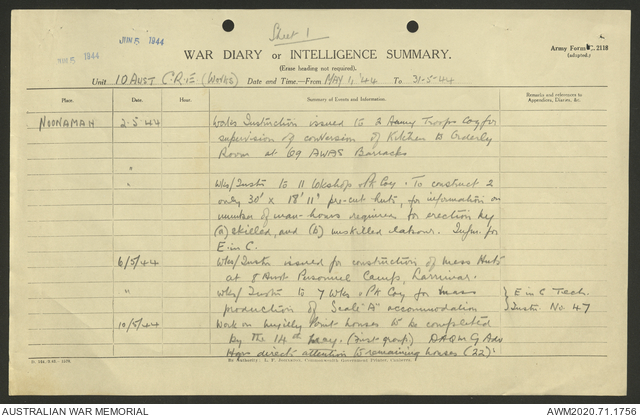 Sheet 1
JUN 5 1944
JUN 5 1944
WAR DIARY or INTELLIGENCE SUMMARY.
Army Form C. 2118
(adapted.)
(Erase heading not required).
Unit 10 AUST C.R.E (WORKS) Date and Time.—From MAY 1, '44 To 31-5-44
Place.
Date.
Hour.
Summary of Events and Information.
Remarks and references to
Appendices, Diaries, &c.
NOONAMAH
2-5-44
Works Instruction issued to 2 Army Troops Coy for
supervision of conversion of Kitchen to Orderly
Room at 69 AWAS Barracks
"
Wks/Instr to 11 Wkshop & Pk Coy. To construct 2
only 30' x 18' 11" pre-cut huts, for information on
number of man-hours required for erection by
(a) skilled, and (b) unskilled labour. Infm. for
E-in-C.
6/5/44
Wks/Instr issued for construction of Mess Huts
at 8 Aust Personnel Camp, Larrimah.
"
Wks/Instr to 7 Wks & Pk Coy for mass
production of Scale "A" accommodation
E in C Tech.
Instr. No 47
10/5/44
Work on Point houses to be completed
by the 14th May. (First group)
direct attention to remaining houses (22).
By Authority: L. F. Johnston, Commonwealth Government Printer, Canberra.
AUSTRALIAN WAR MEMORIAL
AWM2020.71.1756